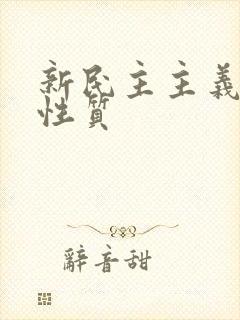 新民主主義
性質
辭音甜